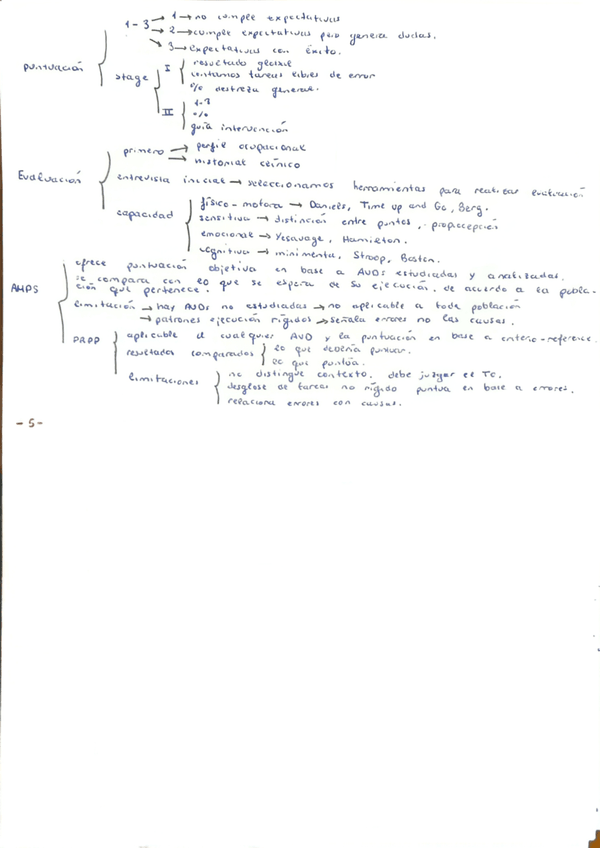 1-3 → 1 → no cumple expectativas
→ 2 → cumple expectativas pero genera dudas.
→ 3 → expectativas con éxito.
puntuación
stage
I
resultado global
contamos tareas libres de error
% destreza general.
II
1-3
%
guía intervención
Evaluación
primero → perfil ocupacional
→ historial clínico
entrevista inicial → seleccionamos herramientas para realizar evaluación
capacidad
físico-motora → Daniels, Time up and Go, Berg.
sensitiva → distinción entre puntos, propiocepción
emocional → Yesavage, Hamilton.
cognitiva → minimental, Stroop, Boston.
AMPS
ofrece puntuación objetiva en base a AVDs estudiadas y analizadas.
se compara con lo que se espera de su ejecución, de acuerdo a la pobla-
ción que pertenece.
limitación → hay AVDs no estudiadas → no aplicable a toda población
→ patrones ejecución rígidos → señala errores no las causas.
PRPP
aplicable a cualquier AVD y la puntuación en base a criterio-reference.
resultados comparados
lo que debería puntuar.
lo que puntúa.
limitaciones
no distingue contexto, debe juzgar el TO.
desglose de tareas no rígido puntua en base a errores.
relaciona errores con causas.
- 5 -